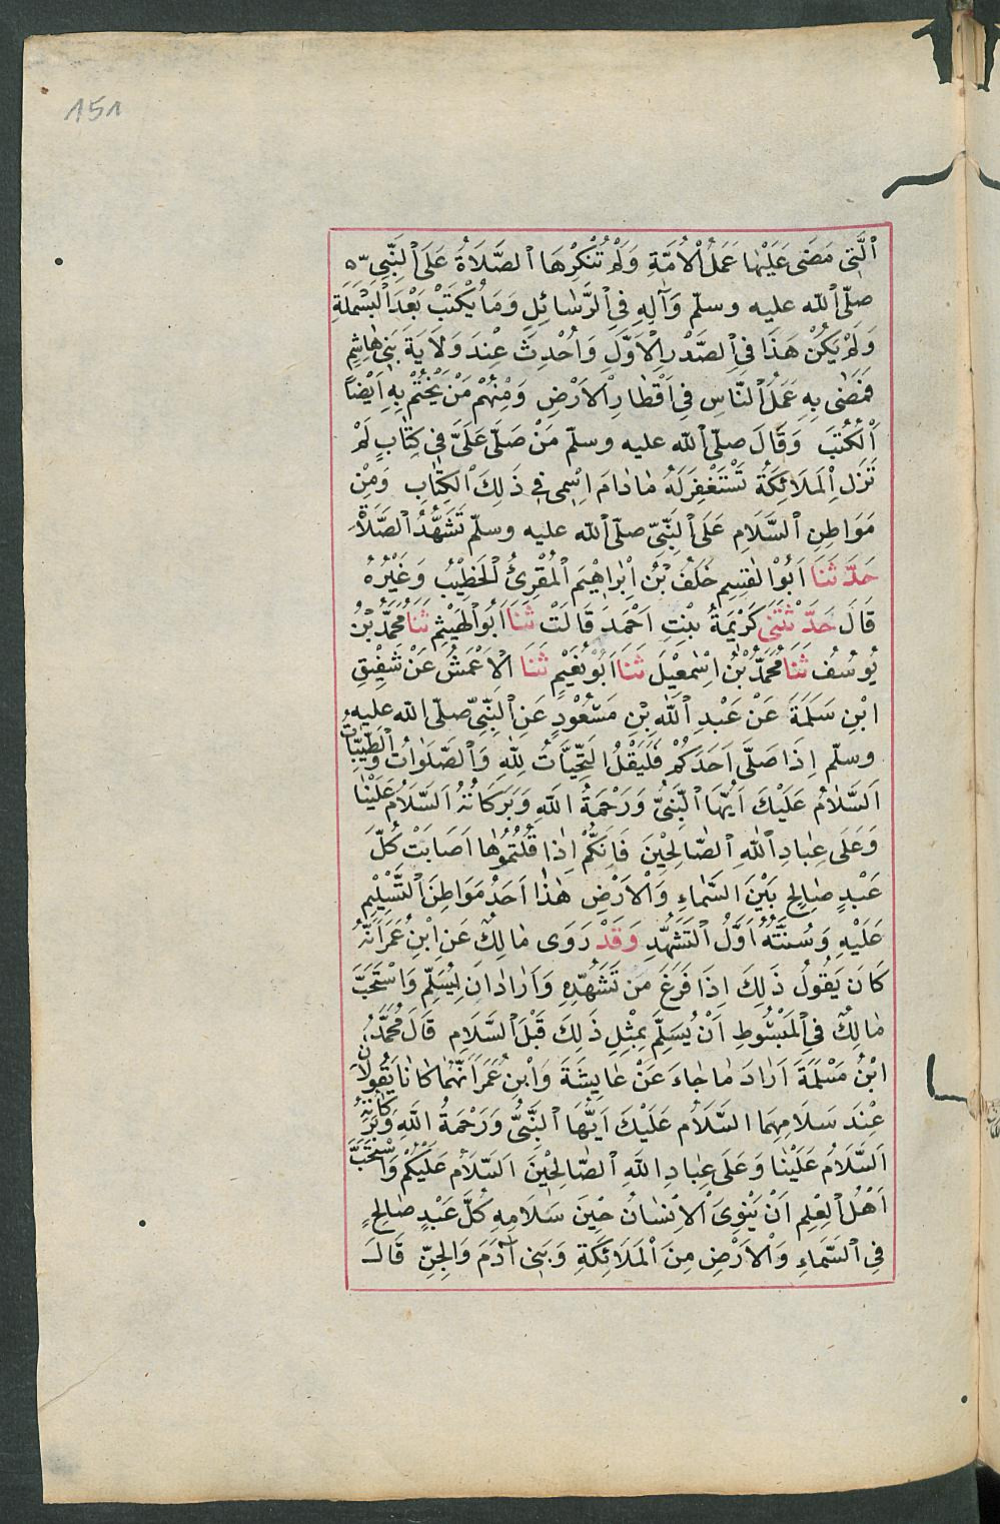 151
ٱلَّتِى مَضَى عَلَيْهَا عَمَلُ ٱلْأُمَّةِ وَلَمْ تُنْكِرْهَا ٱلصَّلَاةُ عَلَى ٱلنَّبِيِّ
صلّى ٱللّه عليه وسلّم وَآلِهِ فِي ٱلرَّسَائِلِ وَمَا يُكْتَبُ بَعْدَ ٱلْبَسْمَلَةِ
وَلَمْ يَكُنْ هَذَا فِي ٱلصَّدْرِ ٱلْأَوَّلِ وَأُحْدِثَ عِنْدَ وَلَايَةِ بَنِى هَاشِمٍ
فَمَضٰى بِهِ عَمَلُ ٱلنَّاسِ فِى أَقْطَارِ ٱلْأَرْضِ وَمِنْهُمْ مَنْ يَخْتِمُ بِهِ أَيْضًا
ٱلْكُتُبَ وَقَالَ صلّى ٱللّه عليه وسلّم مَنْ صَلَّى عَلَىَّ فِى كِتَابٍ لَمْ
تَزَلِ ٱلْمَلَائِكَةُ تَسْتَغْفِرُ لَهُ مَادَامَ اِسْمِى فِى ذَلِكَ ٱلْكِتَابِ وَمِنْ
مَوَاطِنِ ٱلسَّلَامِ عَلَى ٱلنَّبِيِّ صلّى ٱللّه عليه وسلّم تَشَهُّدُ ٱلصَّلَاةِ
حَدَّثَنَا اَبُو ٱلْقٰسِمِ خَلَفُ بْنُ اِبْرَاهِيْمَ ٱلْمُقْرِئُ ٱلْخَطِيْبُ وَغَيْرُهُ
قَالَ حَدَّثَتْنِى كَرِيْمَةُ بِنْتِ اَحْمَدَ قَالَتْ ثَنَا اَبُو ٱلْهَيْثَمِ ثَنَا مُحَمَّدُ بْنُ
يُوسُفَ ثَنَا مُحَمَّدُ بْنُ اِسْمٰعِيْلَ ثَنَا اَبُو نُعَيْمٍ ثَنَا ٱلْاَعْمَشُ عَنْ شَقِيْقِ
ابْنِ سَلَمَةَ عَنْ عَبْدِ ٱللّٰهِ بْنِ مَسْعُوْدٍ عَنِ ٱلنَّبِيِّ صلّى ٱللّه عليه
وسلّم اِذَا صَلَّى اَحَدُكُمْ فَلْيَقُلْ ٱلتَّحِيَّاتُ لِلّٰهِ وَٱلصَّلَوَاتُ وَٱلطَّيِّبَاتُ
اَلسَّلَامُ عَلَيْكَ اَيُّهَا ٱلنَّبِىُّ وَرَحْمَةُ ٱللّٰهِ وَبَرَكَاتُهُ اَلسَّلَامُ عَلَيْنَا
وَعَلَى عِبَادِ ٱللّٰهِ ٱلصَّالِحِيْنَ فَاِنَّكُمْ اِذَا قُلْتُمُوْهَا اَصَابَتْ كُلَّ
عَبْدٍ صَالِحٍ بَيْنَ ٱلسَّمَاءِ وَٱلْاَرْضِ هٰذَا اَحَدُ مَوَاطِنِ ٱلتَّسْلِيْمِ
عَلَيْهِ وَسُنَّتُهُ اَوَّلُ ٱلتَّشَهُّدِ وَقَدْ رَوَى مَالِكٌ عَنِ ابْنِ عُمَرَ اَنَّهُ
كَانَ يَقُولُ ذَلِكَ اِذَا فَرَغَ مِنْ تَشَهُّدِهِ وَاَرَادَ اَنْ يُسَلِّمَ وَاسْتَحَبَّ
مَالِكٌ فِى ٱلْمَبْسُوطِ اَنْ يُسَلِّمَ بِمِثْلِ ذَلِكَ قَبْلَ ٱلسَّلَامِ قَالَ مُحَمَّدُ
ابْنُ مَسْلَمَةَ اَرَادَ مَا جَاءَ عَنْ عَايِشَةَ وَابْنِ عُمَرَ اَنَّهُمَا كَانَا يَقُولَانِ
عِنْدَ سَلَامِهِمَا اَلسَّلَامُ عَلَيْكَ اَيُّهَا ٱلنَّبِىُّ وَرَحْمَةُ ٱللّٰهِ وَبَرَكَاتُهُ
اَلسَّلَامُ عَلَيْنَا وَعَلَى عِبَادِ ٱللّٰهِ ٱلصَّالِحِيْنَ اَلسَّلَامُ عَلَيْكُمْ وَاسْتَحَبَّ
اَهْلُ ٱلْعِلْمِ اَنْ يَنْوِىَ ٱلْاِنْسَانُ حِيْنَ سَلَامِهِ كُلَّ عَبْدٍ صَالِحٍ
فِى ٱلسَّمَاءِ وَٱلْاَرْضِ مِنَ ٱلْمَلَائِكَةِ وَبَنِى آدَمَ وَٱلْجِنِّ قَالَ